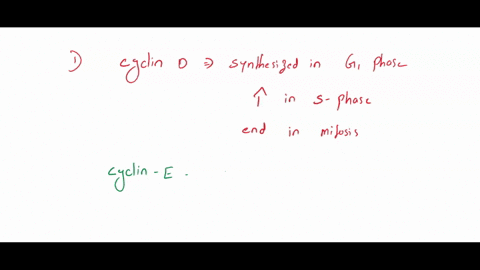 1) cyclin D ⇒ synthesized in G1 phase
↑ in S-phase
end in mitosis
cyclin - E .